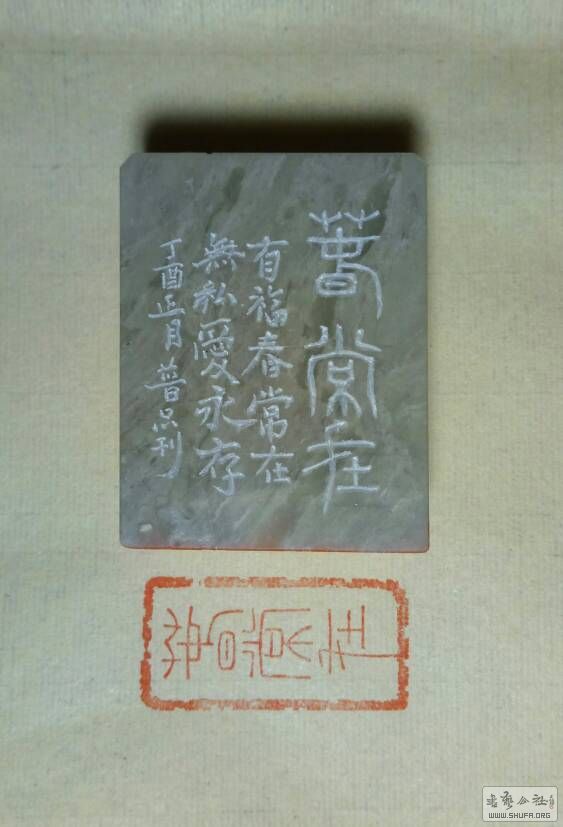 春常在
有福春常在
無私愛永存
丁酉正月普只刊
書藝公社
WWW.SHUFA.ORG